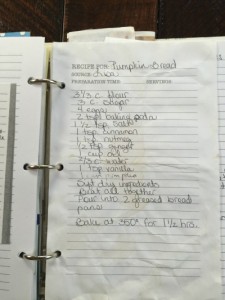 RECIPE FOR Pumpkin Bread
SOURCE
PREPARATION TIME SERVINGS
3 1/3 c. flour
3 c. sugar
4 eggs
2 tsp baking soda
1 1/2 tsp salt
1 tsp cinnamon
1 tsp nutmeg
1/2 tsp ginger
1 cup oil
2/3 c. water
1 tsp vanilla
pumpkin
Sift dry ingredients
Beat all together
Pour into 2 greased bread
pans
Bake at 350° for 1 1/2 hrs.